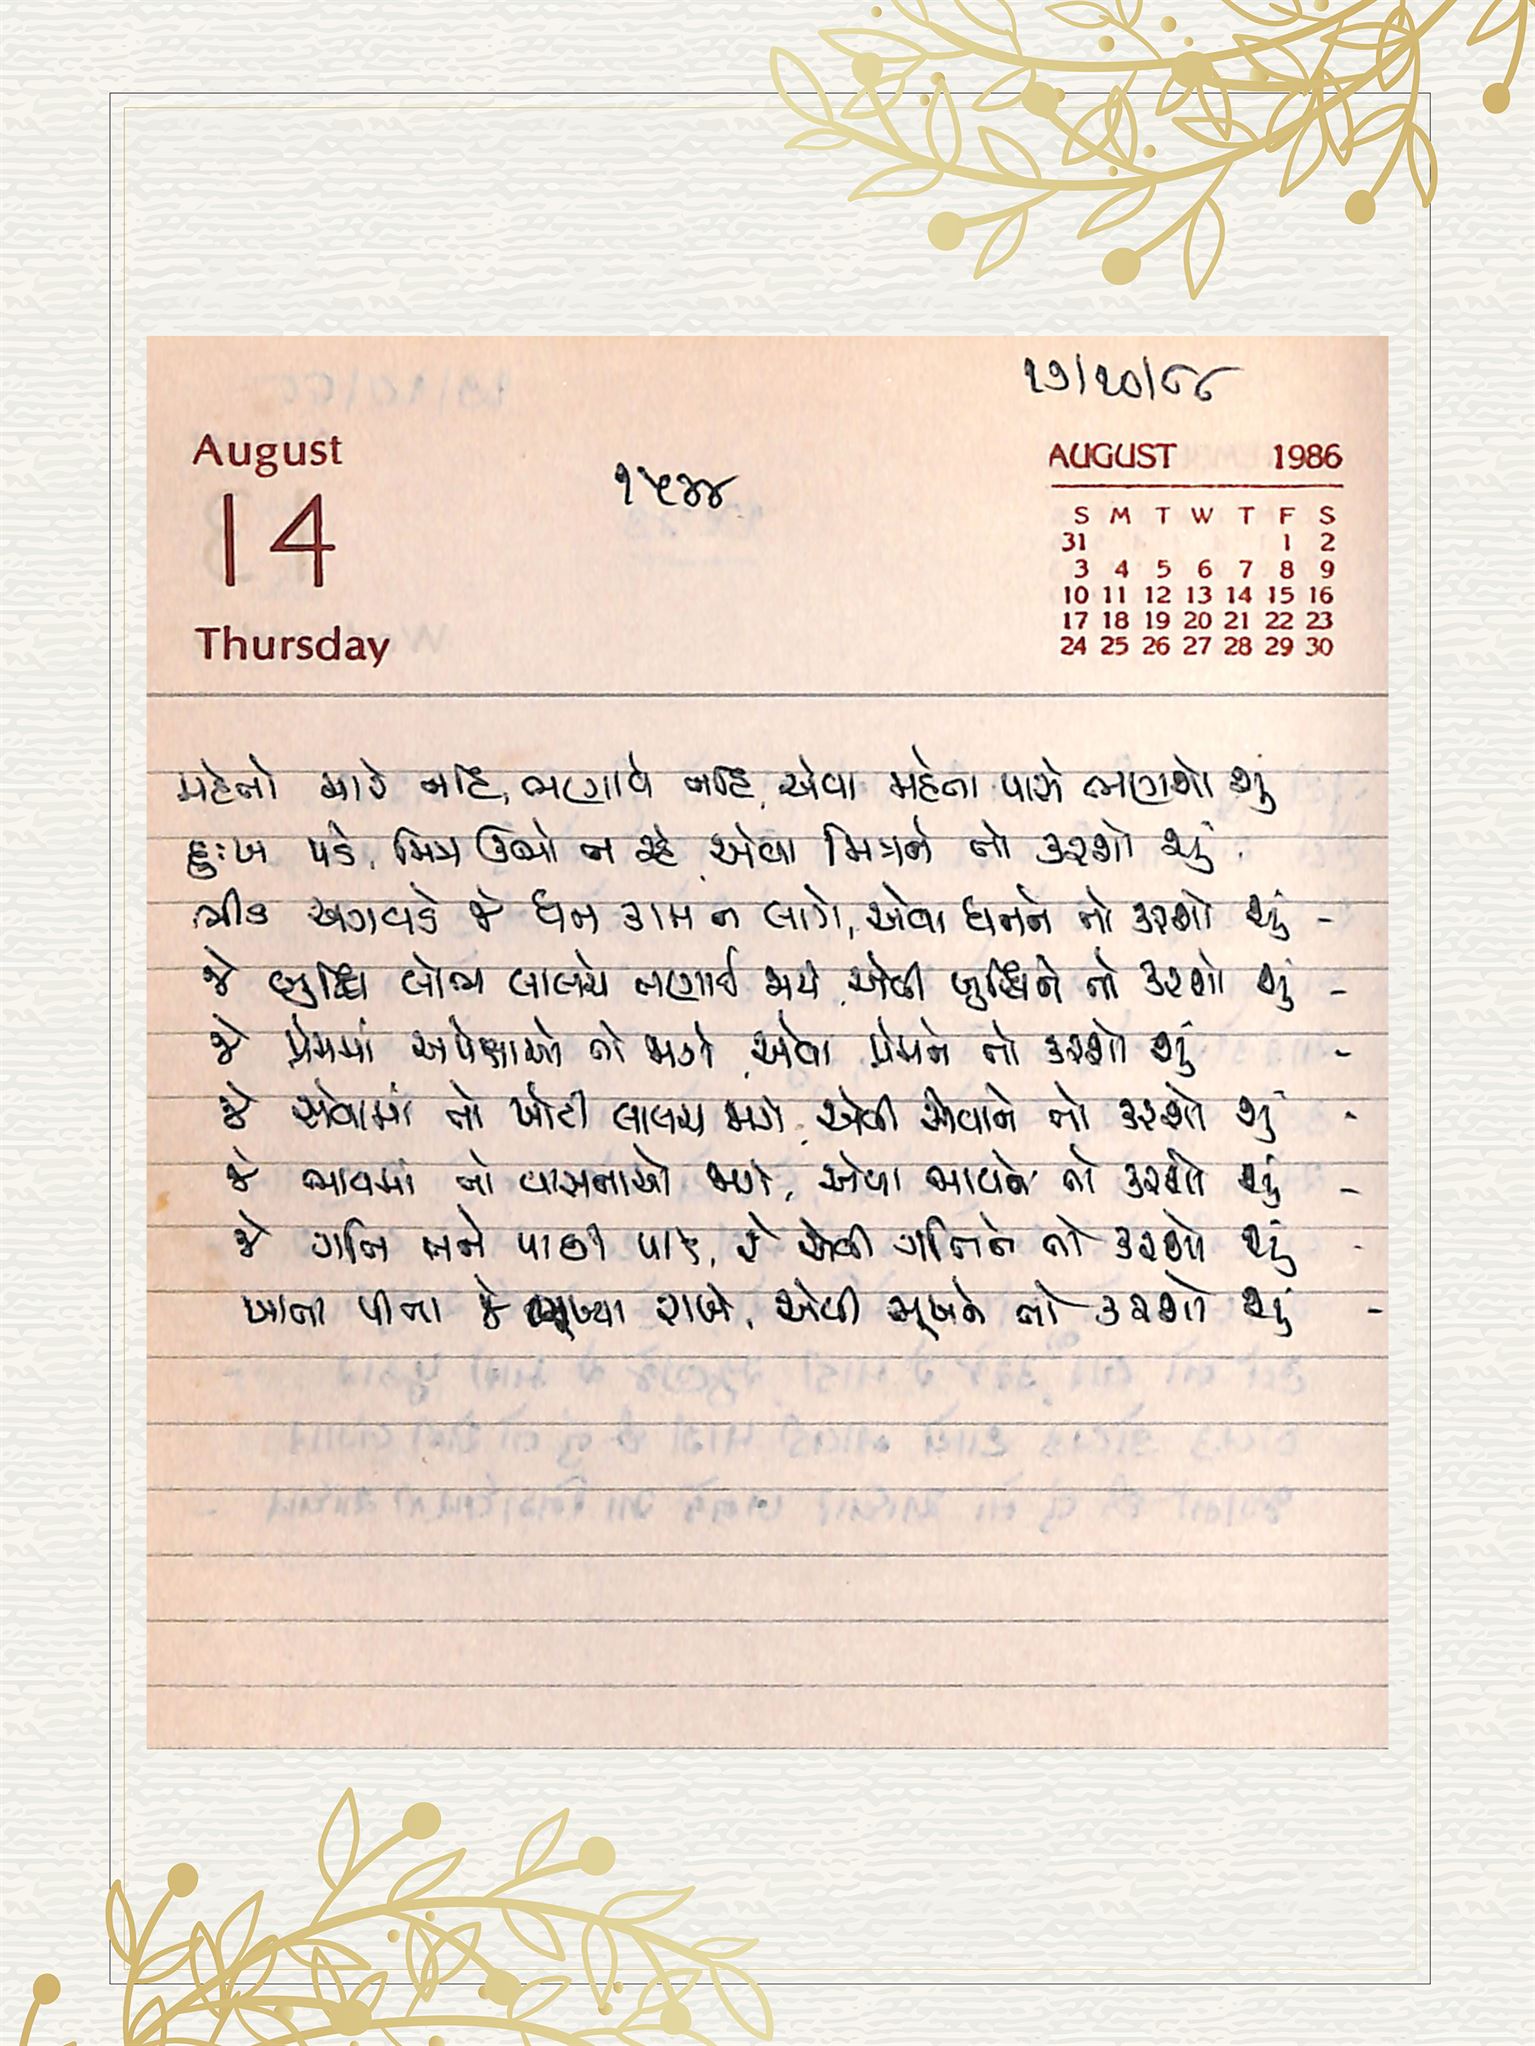 ૧૭/૧૦/૮૮
August
14
Thursday
૧૫૪૪
AUGUST 1986
S M T W T F S
31 1 2
3 4 5 6 7 8 9
10 11 12 13 14 15 16
17 18 19 20 21 22 23
24 25 26 27 28 29 30
મહેતો મારે નહિ, ભણાવે નહિ, એવા મહેતા પાસે ભણશો શું
દુઃખ પડે, મિત્ર ઉભો ન રહે, એવા મિત્રને તો કરશો શું.
ભીડ અગવડે જે ધન કામ ન લાગે, એવા ધનને તો કરશો શું -
જે બુદ્ધિ લોભ લાલચે તણાઈ જાયે, એવી બુદ્ધિને તો કરશો શું -
જે પ્રેમમાં અપેક્ષાઓ તો જાગે, એવા પ્રેમને તો કરશો શું -
જે સેવામાં તો ખોટી લાલચ જાગે, એવી સેવાને તો કરશો શું -
જે ભાવમાં તો વાસનાઓ જાગે, એવા ભાવને તો કરશો શું -
જે ગતિ મને પાછી પાડે, રે એવી ગતિને તો કરશો શું -
ખાતા પીતા જે ભૂખ્યા રાખે, એવી ભૂખને તો કરશો શું -